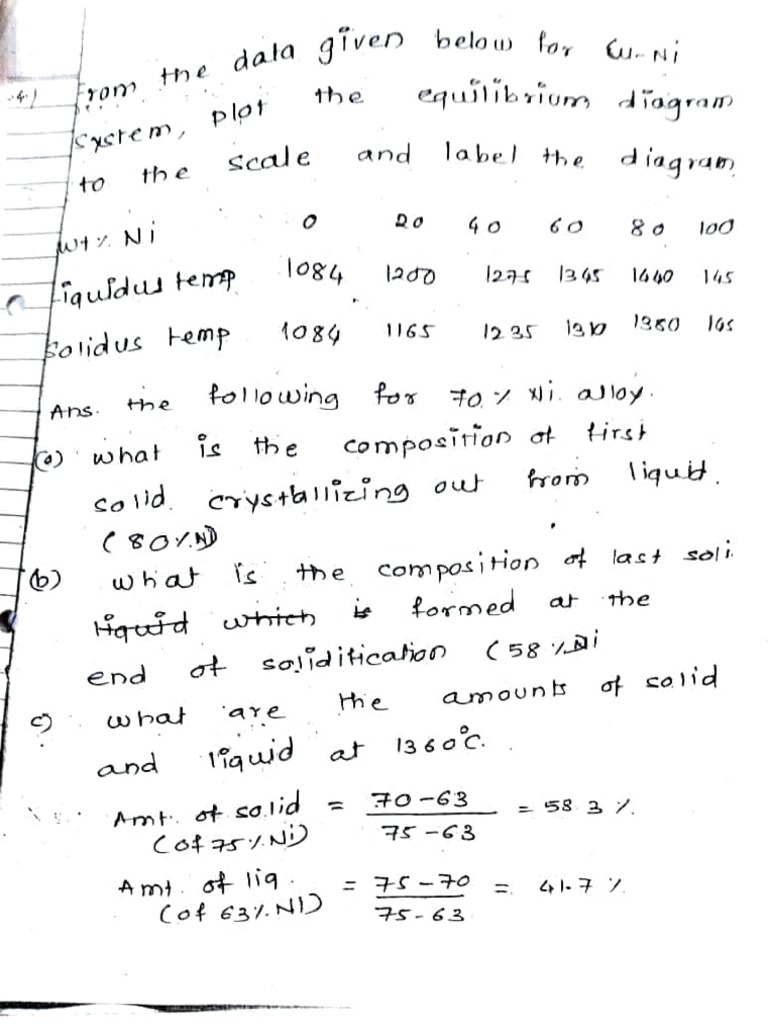 4) From the data given below for Cu-Ni
system, plot the equilibrium diagram
to the scale and label the diagram
wt% Ni 0 20 40 60 80 100
Liquidus temp 1084 1200 1275 1345 1440 145
Solidus temp 1084 1165 1235 1310 1380 145
Ans. the following for 70% Ni alloy.
(a) what is the composition of first
solid crystallizing out from liquid.
(80% Ni)
(b) what is the composition of last soli
liquid which is formed at the
end of solidification (58% Ni
c) what are the amounts of solid
and liquid at 1360°C.
Amt. of solid = 70-63 / 75-63 = 58.3 %.
(of 75% Ni)
Amt. of liq. = 75-70 / 75-63 = 41.7 %
(of 63% NI)